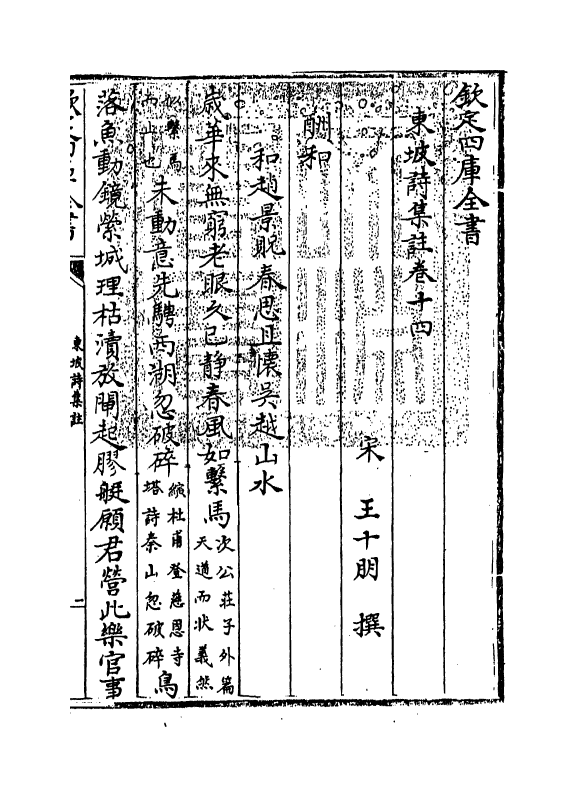 欽定四庫全書
東坡詩集註卷十四
宋 王十朋 撰
酬和
和趙景貺春思且懷吳越山水
歲華來無窮老眼久已静春風如繫馬次公莊子外篇
天道而狀義然
似繫馬
而止也未動意先騁西湖忽破碎縯杜甫登慈恩寺
塔詩秦山忽破碎鳥
落魚動鏡縈城理枯瀆放閘起膠艇願君營此樂官事
欽定四庫全書
東坡詩集註